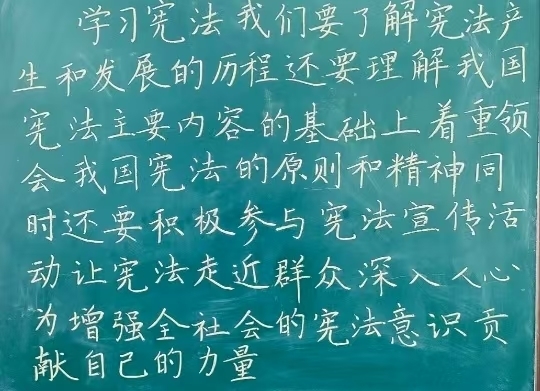 学习宪法我们要了解宪法产
生和发展的历程还要理解我国
宪法主要内容的基础上着重领
会我国宪法的原则和精神同
时还要积极参与宪法宣传活
动让宪法走近群众深入人心
为增强全社会的宪法意识贡
献自己的力量